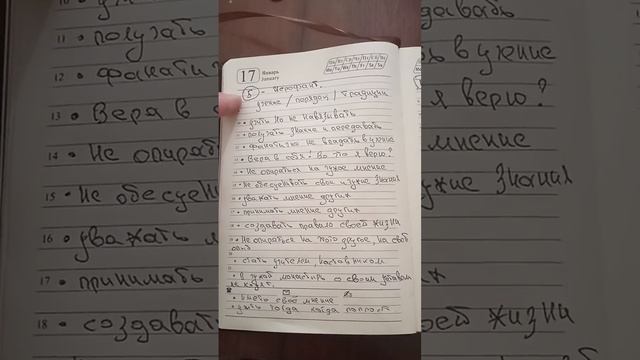 17 Январь
January
5 - Иерофант.
учение / порядок / традиции
• учить но не навязывать
• получать знание и передавать
• фанатично не впадать в учение
• Вера в себя! Во что я верю?
• Не опираться на чужое мнение
• Не обесценивать свои и чужие знания
• уважать мнение других
• принимать мнение других
• создавать правило своей жизни
• Не опираться на что другое, на свой
опыт
• стать учителем, наставником
• в чужой монастырь со своим уставом
не ходят.
• иметь свое мнение
• учить тогда когда попросят
11 • получать
12 • фанати
13 • Вера в
14 • Не опират
15 • Не обесце
16 • уважать
17 • принимать
18 • создават
ть в учение
я верю?
мнение
жие знания
своей жизни